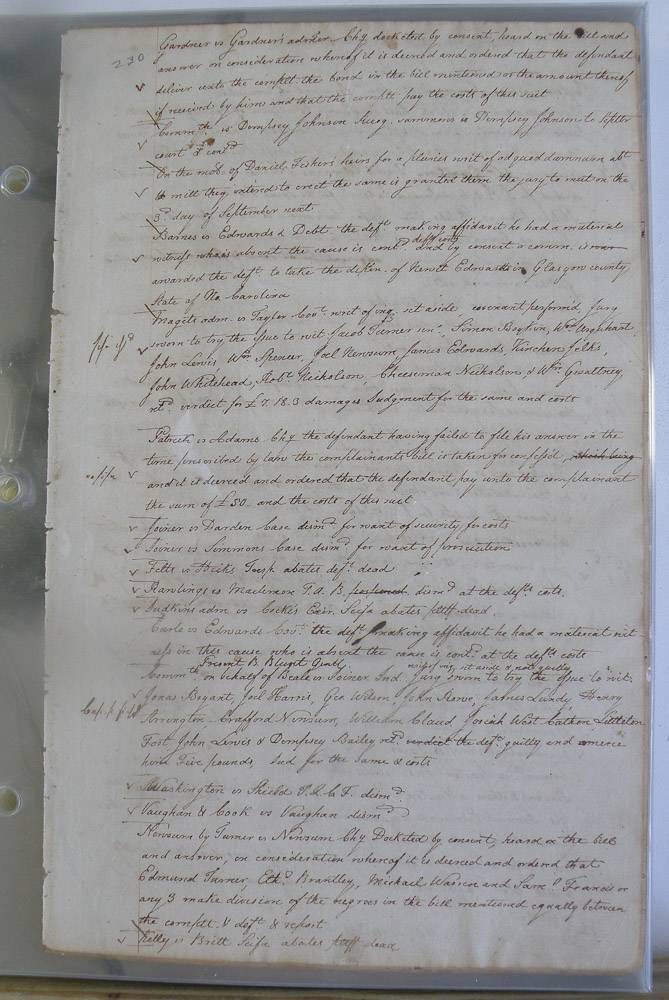 230
Gardner vs Gardner's admr. Chy docketed by consent, heard on the bill and
answer on consideration whereof it is decreed and ordered that the defendant
deliver unto the complt. the bond in the bill mentioned or the amount thereof
if received by him and that the complt. pay the costs of this suit
Commth. vs Dempsey Johnson summons vs Dempsey Johnson to
court & contd
On the mo. of Daniel heirs for a pluries writ of ad quod damnum abt
a mill they intend to erect the same is granted them the jury to meet on the
3d. day of September next
Barnes vs Edwards & Debt the deft. making affidavit he had a material
witness who is absent the cause is contd. defts costs And by consent a comm. is
awarded the deft. to take the depn. of Newitt Edwards in Glasgow county,
State of No. Carolina
adm. vs Taylor Covt. writ of inq. set aside, covenant performd, Jury
sworn to try the issue to wit Jacob Turner senr., Simon Boykin, Wm. Urquhart,
John Lewis, Wm. Spencer, Joel Newsum, James Edwards, Kinchen
John Whitehead, Robt. Nicholson, Cheeseman Nicholson, & Wm. Gwaltney
retd. verdict for £7.18.3 damages Judgment for the same and costs
vs Adams Chy the defendant having failed to file his answer in the
time prescribed by law the complainants bill is taken for confessed,
and it is decreed and ordered that the defendant pay unto the complainant
the sum of £50. and the costs of this suit
Joiner vs Darden Case dismd. for want of security for costs
Joiner vs Simmons Case dismd. for want of prosecution
Felts vs Hicks abates deft. dead
Rawlings vs T.A.B. dismd at the defts. costs
Judkins adm vs Cocke's Exor. Scifa abates pltff dead
Earle vs Edwards Covt. the deft making affidavit he had a material wit-
ness in this cause who is absent the cause is contd. at the defts costs
Present B. Blunt Gent.
Commth. on behalf of Beale vs Joiner Ind. set aside & not guilty Jury sworn to try the issue to wit:
Jonas Bryant, Joel Harris, Geo Wilson, John Rowe, James Lundy, Henry
Arrington, Crafford Newsum, William Claud, Josiah West Cathon, Littleton
John Lewis & Dempsey Bailey retd. verdict the deft. guilty and amerce
him Five pounds, Jud for the same & costs
Washington vs Shield dismd.
Vaughan & Cook vs Vaughan dismd
Newsum by Turner vs Newsum Chy Docketed by consent, heard on the bill
and answer, on consideration whereof it is decreed and ordered that
Edmund Turner, Ethd. Brantley, Michael Warren and Saml. Francis or
any 3 make division of the negroes in the bill mentioned equally between
the complt. & deft. & report
Kelly vs Britt Scifa abates pltff dead